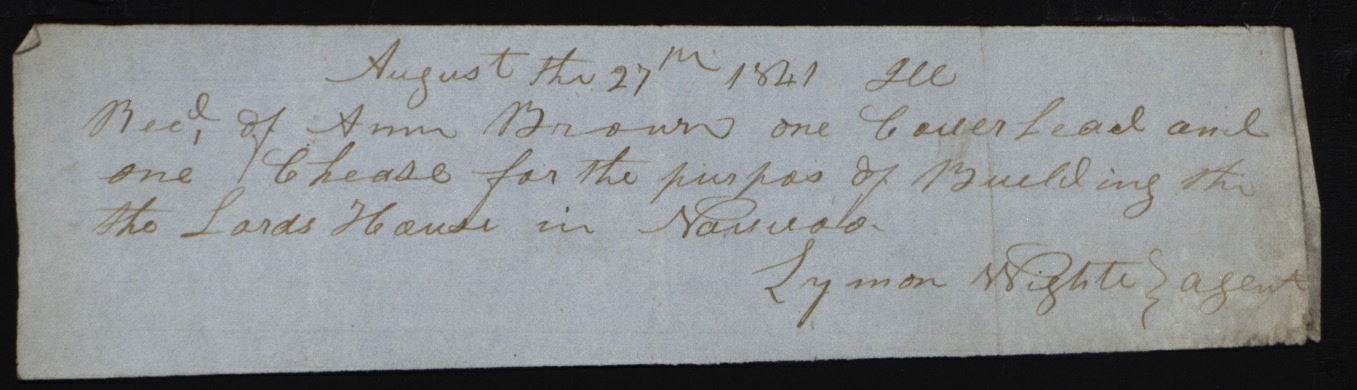 August the 27th 1841 Ill
Recd, of Ann Brown one Coverlead and
one Chease for the purpos of Bueld ing the
the Lords House in Nauvoo
Lymon Wighte } agent